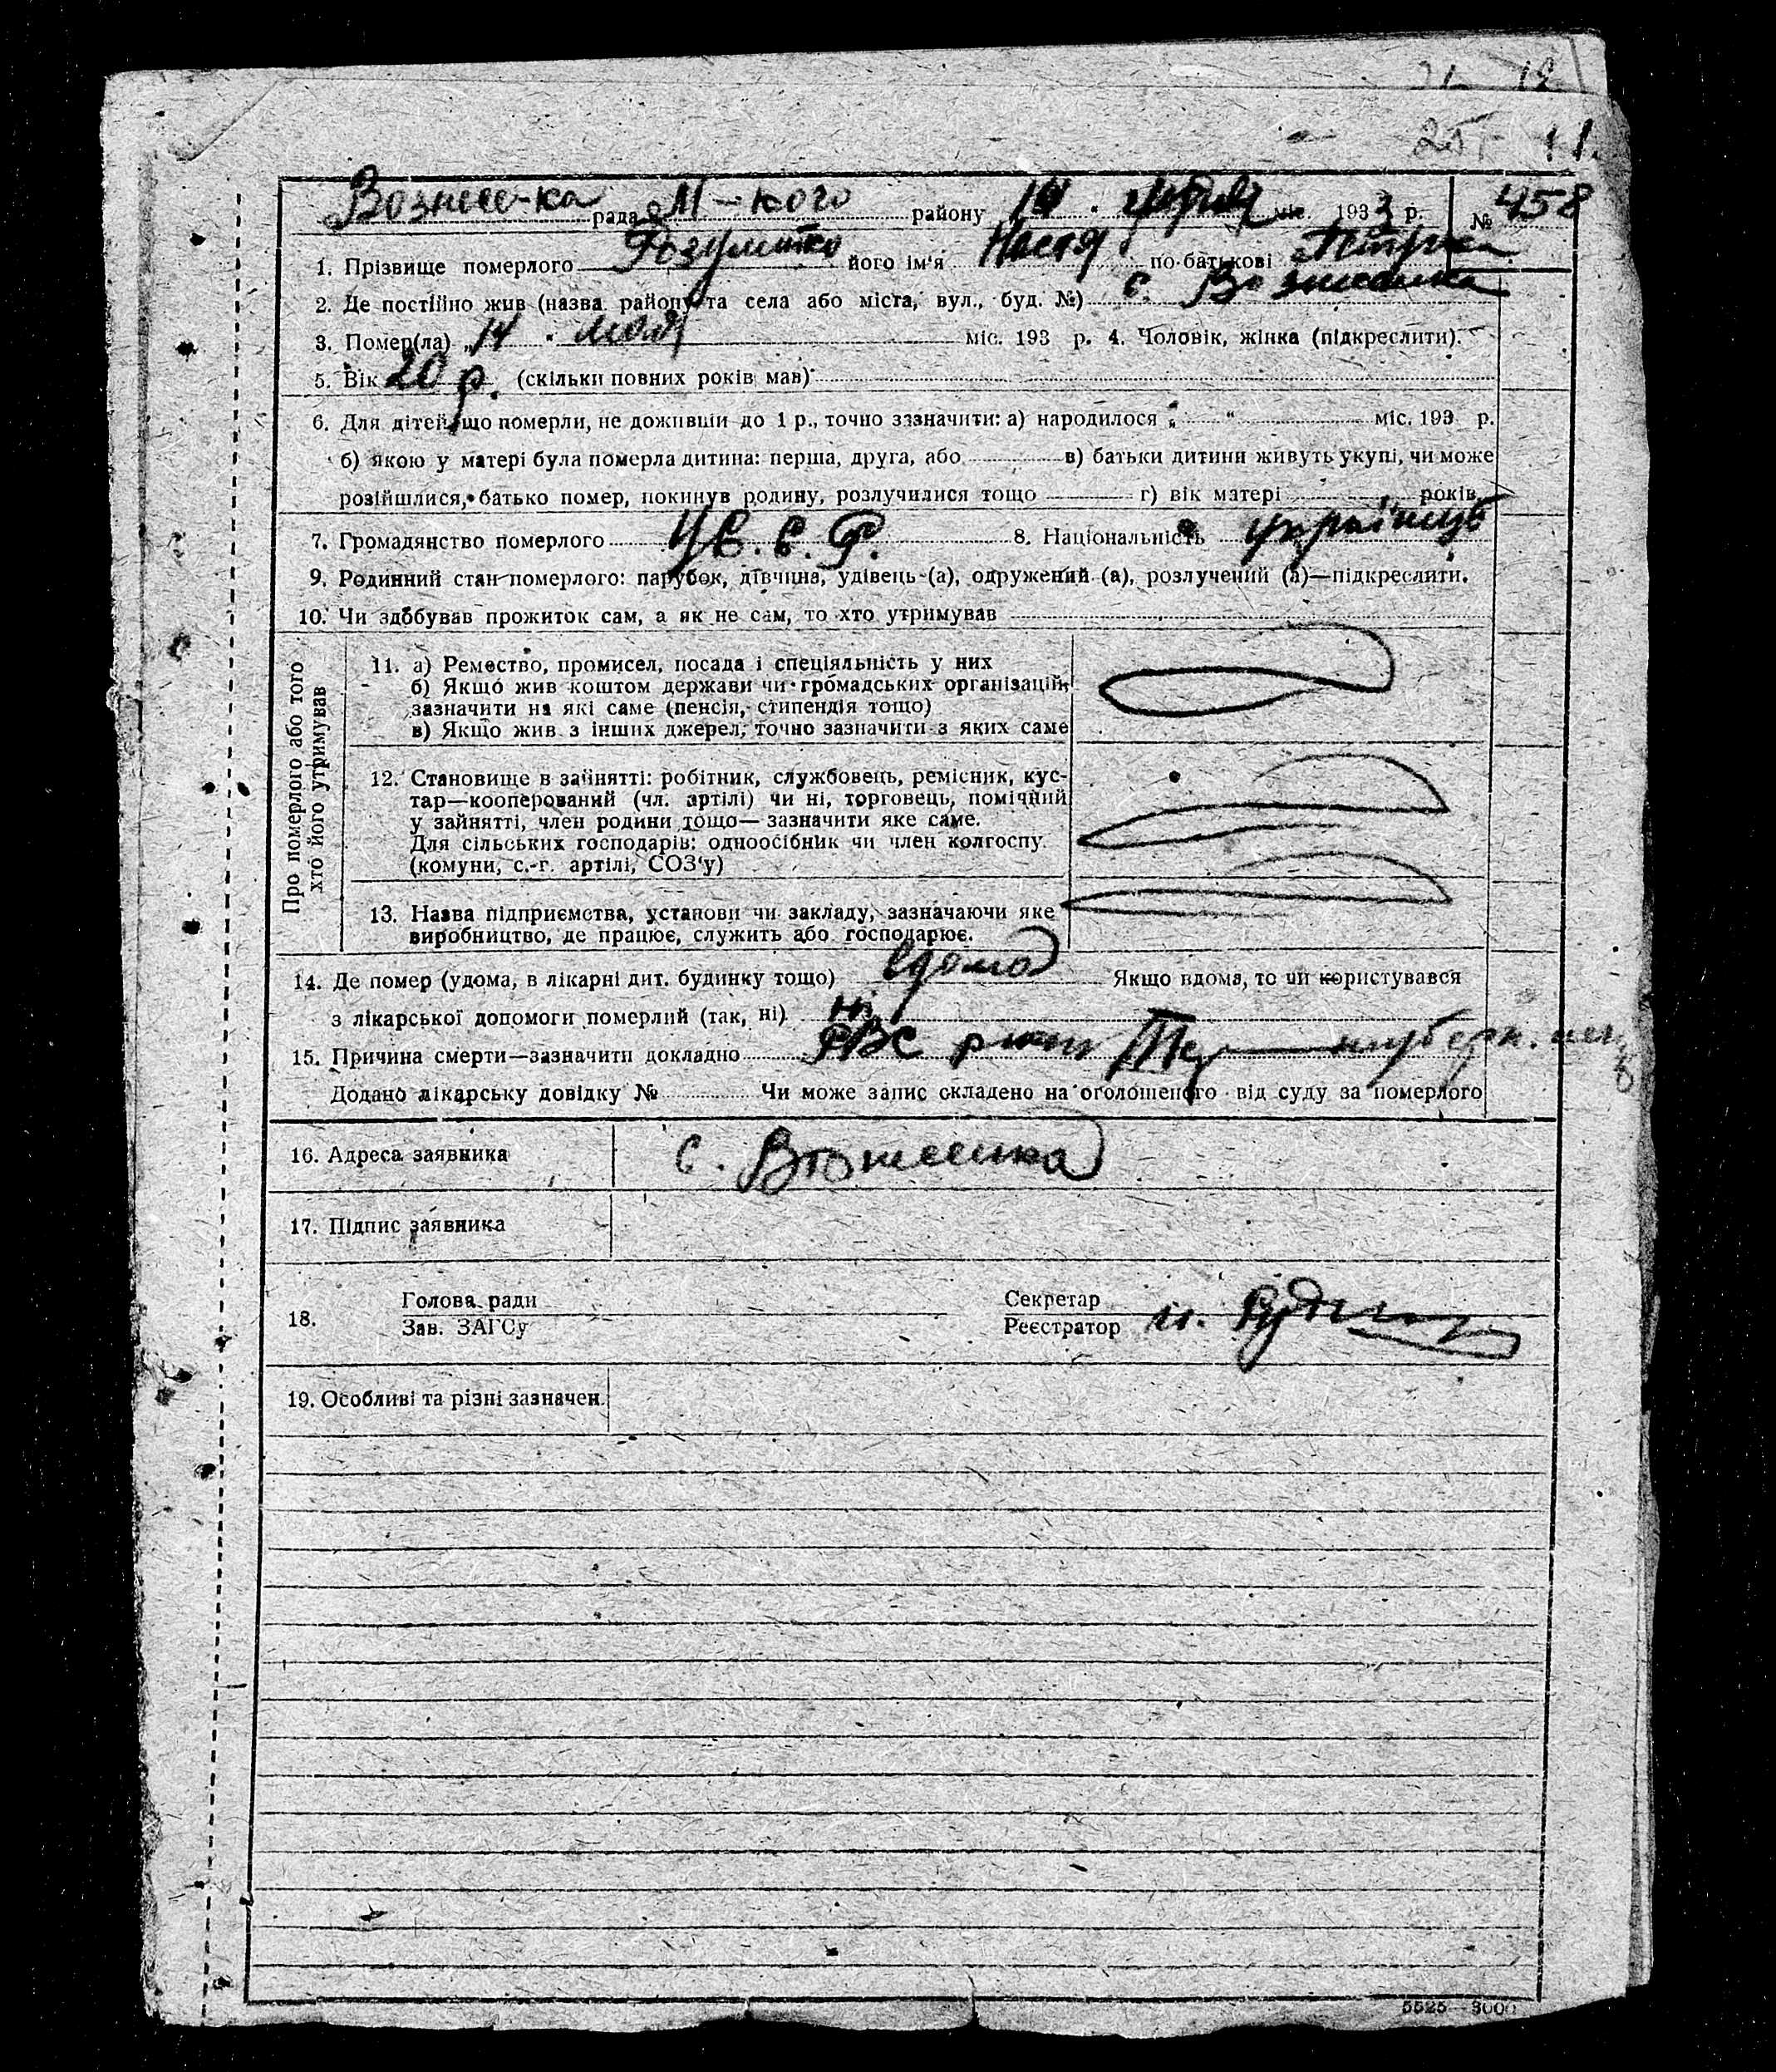 Вознесе-ка рада М-кого району 193 3 р. № 458
1. Прізвище померлого Розумитко його ім'я Настя по-батькові
2. Де постійно жив (назва району та села або міста, вул., буд. №) с. Вознесенка
3. Помер(ла) „14" мая міс. 193 р. 4. Чоловік, жінка (підкреслити).
5. Вік 20 р. (скільки повних років мав)
6. Для дітей, що померли, не доживши до 1 р., точно зазначити: а) народилося „ " міс. 193 р.
б) якою у матері була померла дитина: перша, друга, або в) батьки дитини живуть укупі, чи може
розійшлися, батько помер, покинув родину, розлучилися тощо г) вік матері років
7. Громадянство померлого 8. Національність українць
9. Родинний стан померлого: парубок, дівчина, удівець (а), одружений (а), розлучений (а)—підкреслити.
10. Чи здобував прожиток сам, а як не сам, то хто утримував
Про померлого або того
хто його утримував
11. а) Ремество, промисел, посада і спеціяльність у них
б) Якщо жив коштом держави чи громадських організацій,
зазначити на які саме (пенсія, стипендія тощо)
в) Якщо жив з інших джерел, точно зазначити з яких саме
12. Становище в зайнятті: робітник, службовець, ремісник, кус-
тар—кооперований (чл. артілі) чи ні, торговець, помічний
у зайнятті, член родини тощо— зазначити яке саме.
Для сільських господарів: одноосібник чи член колгоспу
(комуни, с.-г. артілі, СОЗ'у)
13. Назва підприємства, установи чи закладу, зазначаючи яке
виробництво, де працює, служить або господарює.
14. Де помер (удома, в лікарні дит. будинку тощо) вдома Якщо вдома, то чи користувався
з лікарської допомоги померлий (так, ні) Ні
15. Причина смерти—зазначити докладно
Додано лікарську довідку № Чи може запис складено на оголошеного від суду за померлого
16. Адреса заявника с. Вознесенка
17. Підпис заявника
18. Голова ради Секретар
Зав. ЗАГСу Реєстратор
19. Особливі та різні зазначен.
5525—3000